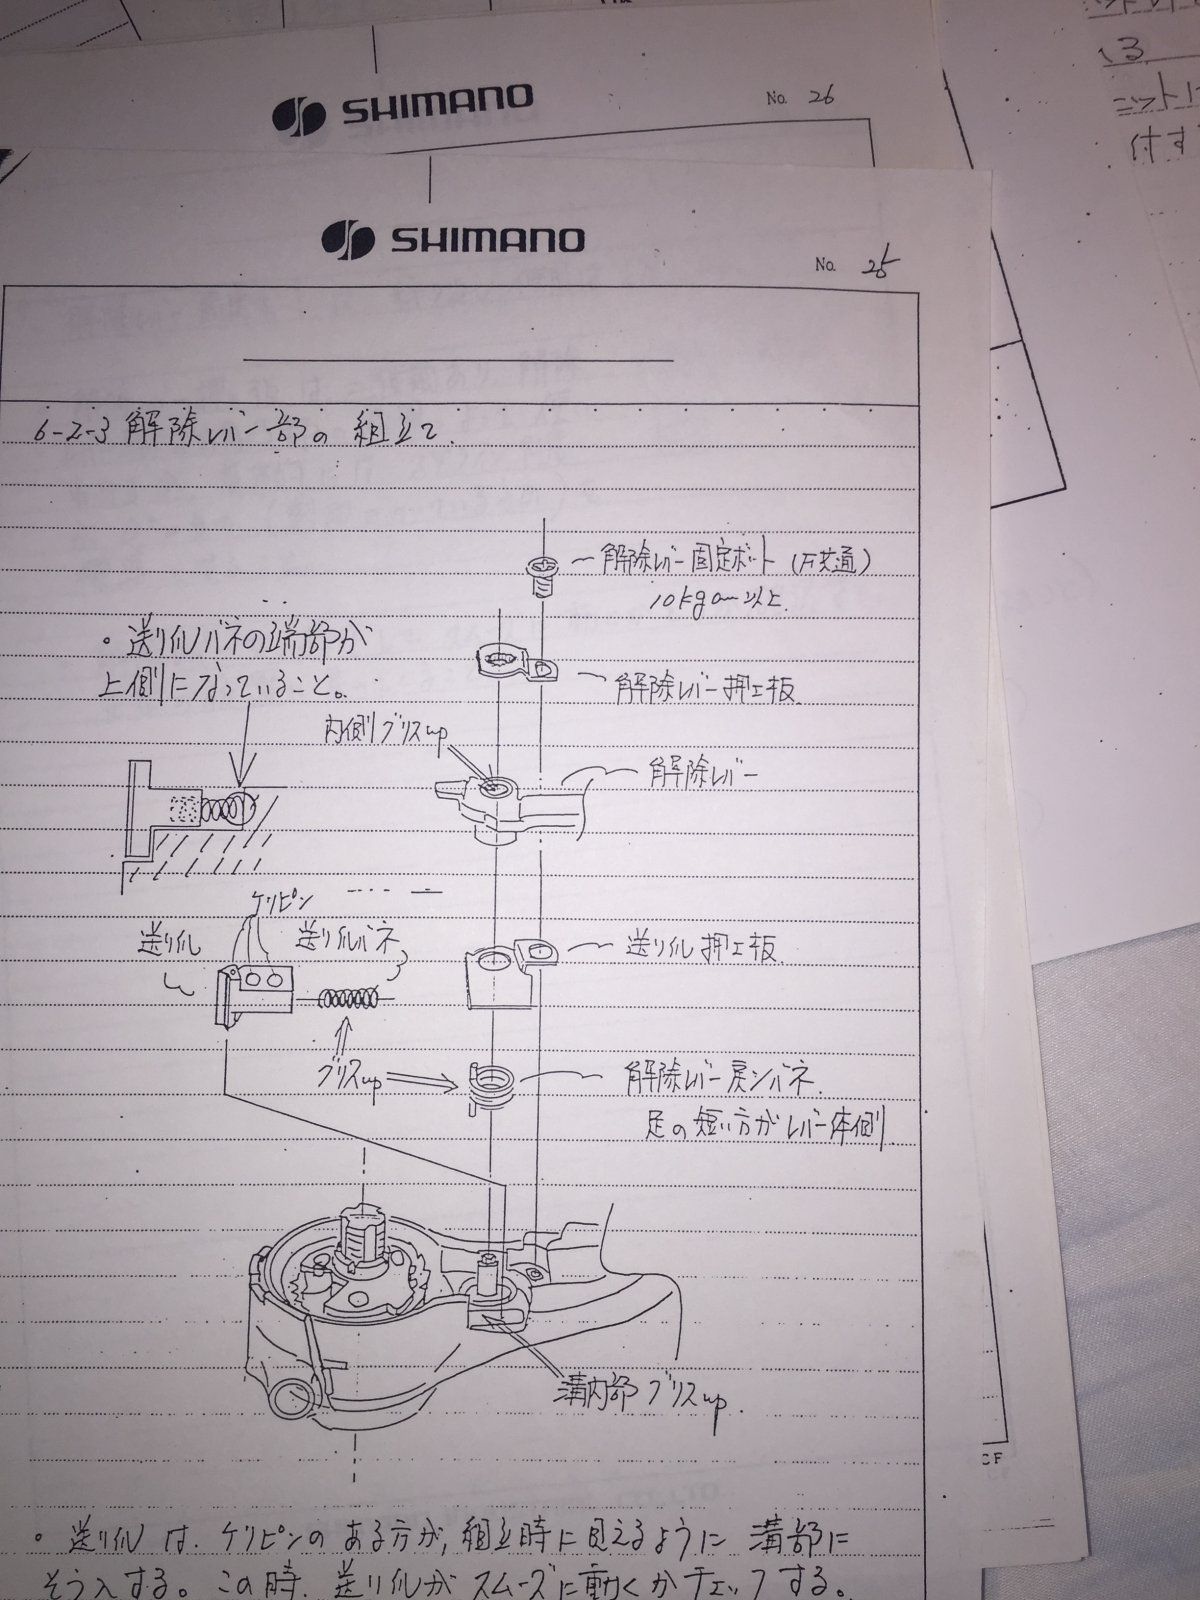 SHIMANO
No. 26
SHIMANO
No. 25
6-2-3 解除レバー部の組立て.
解除レバー固定ボルト(F共通)
10kgcm以上.
・送り爪バネの端部が
上側になっていること。
解除レバー押エ板
内側グリスup
解除レバー
ケリピン
送り爪
送り爪バネ
送り爪押エ板
グリスup
解除レバー戻シバネ.
足の短い方がレバー体側
溝内部グリスup.
CF
・送り爪は、ケリピンのある方が、組立時に見えるように溝部に
そう入する。この時、送り爪がスムーズに動くかチェックする。